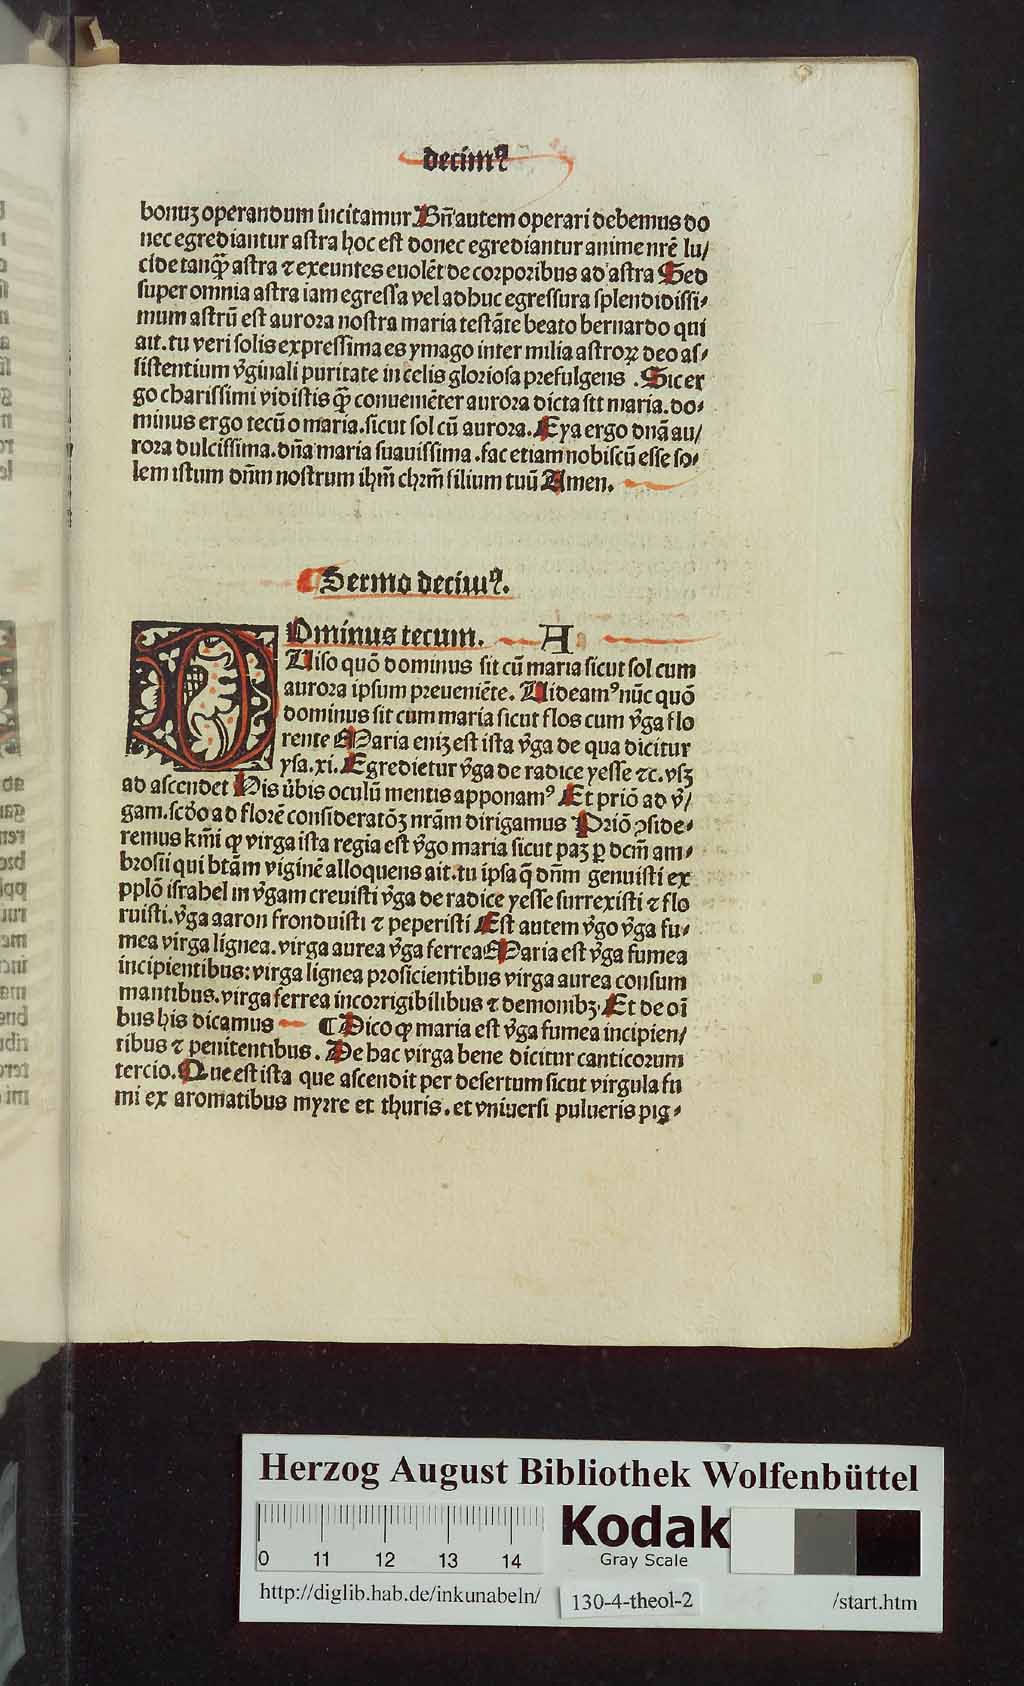 decimꝰ
bonuꝫ operandum incitamur Bn̄ autem operari debemus do
nec egrediantur astra hoc est donec egrediantur anime nrē lu/
cide tanqȝ astra ⁊ exeuntes euolēt de corporibus ad astra Sed
super omnia astra iam egressa vel adhuc egressura splendidissi⸗
mum astrū est aurora nostra maria testāte beato bernardo qui
ait. tu veri solis expressima es ymago inter milia astroꝝ deo as⸗
sistentium v̄ginali puritate in celis gloriosa prefulgens . Sic er
go charissimi vidistis qȝ conueniēter aurora dicta sit maria. do⸗
minus ergo tecū o maria. sicut sol cū aurora. Eya ergo dnā au/
rora dulcissima. dn̄a maria suauissima . fac etiam nobiscū esse so⸗
lem istum dn̄m nostrum ihm̄ chr̄m filium tuū Amen.
Sermo decimꝰ.
Dominus tecum. A
Uiso quō dominus sit cū maria sicut sol cum
aurora ipsum preueniēte. Uideamꝰ nūc quō
dominus sit cum maria sicut flos cum v̄ga flo
rente Maria eniꝫ est ista v̄ga de qua dicitur
ysa. xi. Egredietur v̄ga de radice yesse ⁊c. vsꝫ
ad ascendet His v̄bis oculū mentis apponamꝰ Et priō ad v̄/
gam. scdō ad florē consideratōꝫ nrām dirigamus Priō ꝯside⸗
remus km̄i ꝙ virga ista regia est v̄go maria sicut paꝫ ꝑ dcm̄ am⸗
brosii qui btām viginē alloquens ait. tu ipsa q̄ dn̄m genuisti ex
pplō israhel in v̄gam creuisti v̄ga de radice yesse surrexisti ⁊ flo
ruisti. v̄ga aaron fronduisti ⁊ peperisti Est autem v̄go v̄ga fu⸗
mea virga lignea. virga aurea v̄ga ferrea Maria est v̄ga fumea
incipientibus: virga lignea proficientibus virga aurea consum
mantibus. virga ferrea incorrigibilibus ⁊ demonibꝫ. Et de oī
bus his dicamus ¶ Dico ꝙ maria est v̄ga fumea incipien/
tibus ⁊ penitentibus. De hac virga bene dicitur canticorum
tercio. Que est ista que ascendit per desertum sicut virgula fu
mi ex aromatibus myrre et thuris. et vniuersi pulueris pig⸗
Herzog August Bibliothek Wolfenbüttel
0 11 12 13 14
Kodak
Gray Scale
http://diglib.hab.de/inkunabeln/ 130-4-theol-2 /start.htm